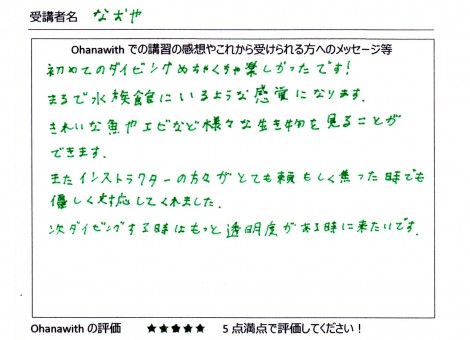 受講者名 なおや
Ohanawith での講習の感想やこれから受けられる方へのメッセージ等
初めてのダイビングめちゃくちゃ楽しかったです!
まるで水族館にいるような感覚になります.
きれいな魚やエビなど様々な生き物を見ることが
できます.
またインストラクターの方々がとても頼もしく焦った時でも
優しく対応してくれました.
次ダイビングする時はもっと透明度がある時に来たいです.
Ohanawith の評価 ★★★★★ 5 点満点で評価してください!